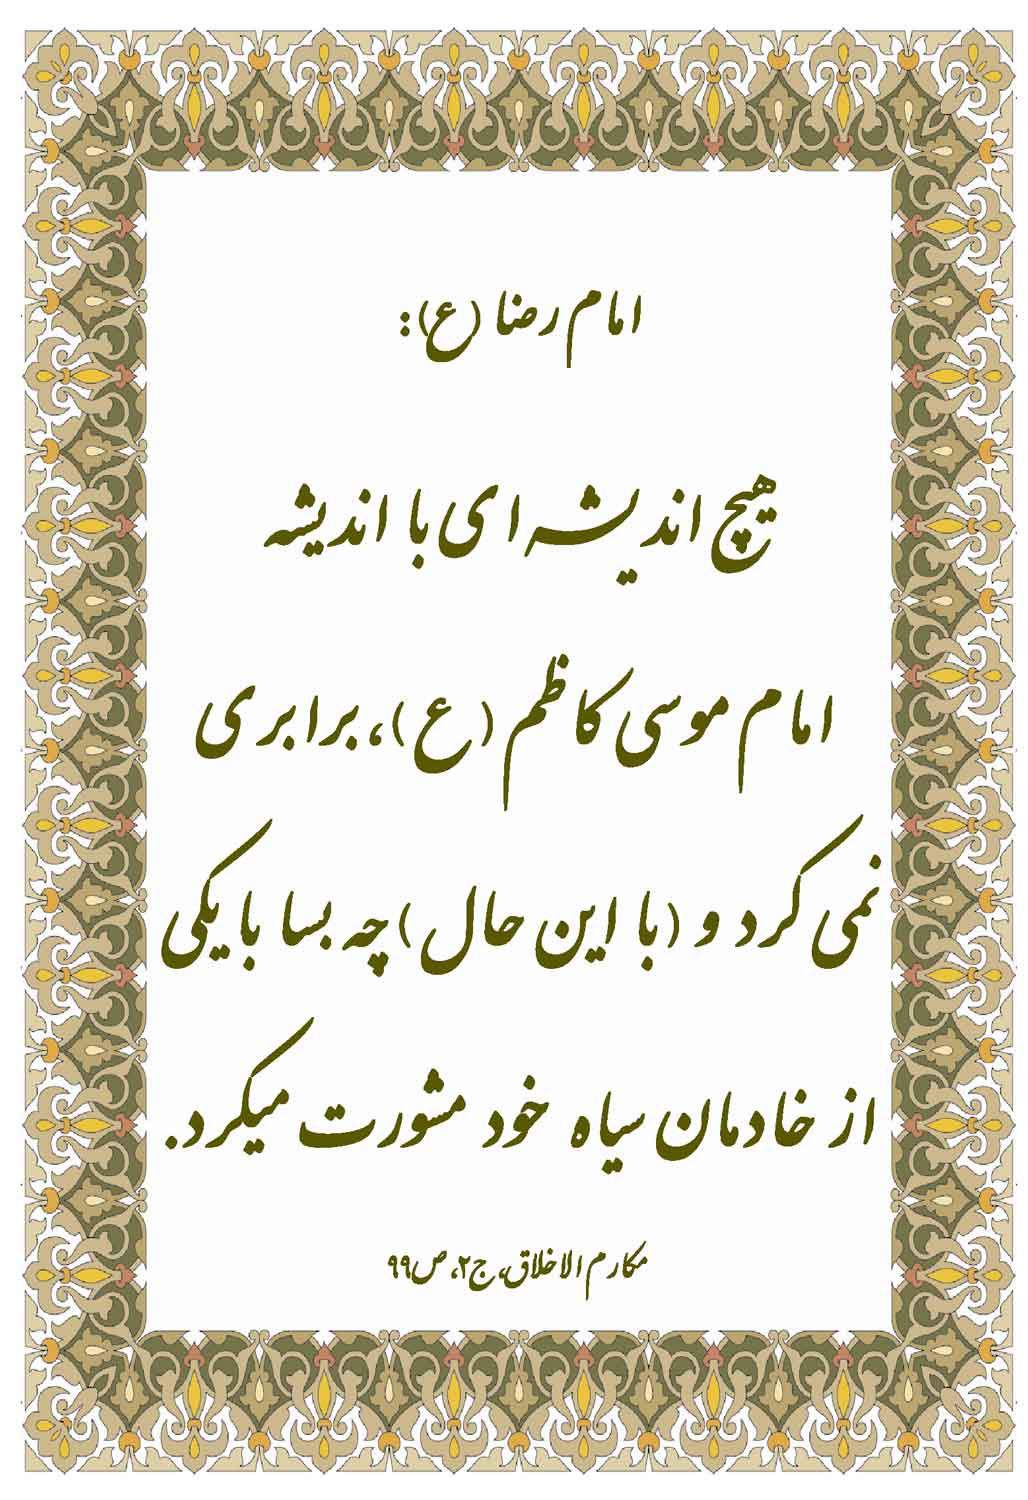 امام رضا (ع):
هیچ اندیشه ای با اندیشه
امام موسی کاظم (ع)، برابری
نمی کرد و (با این حال) چه بسا با یکی
از خادمان سیاه خود مشورت میکرد.
مکارم الاخلاق، ج۲، ص۹۹